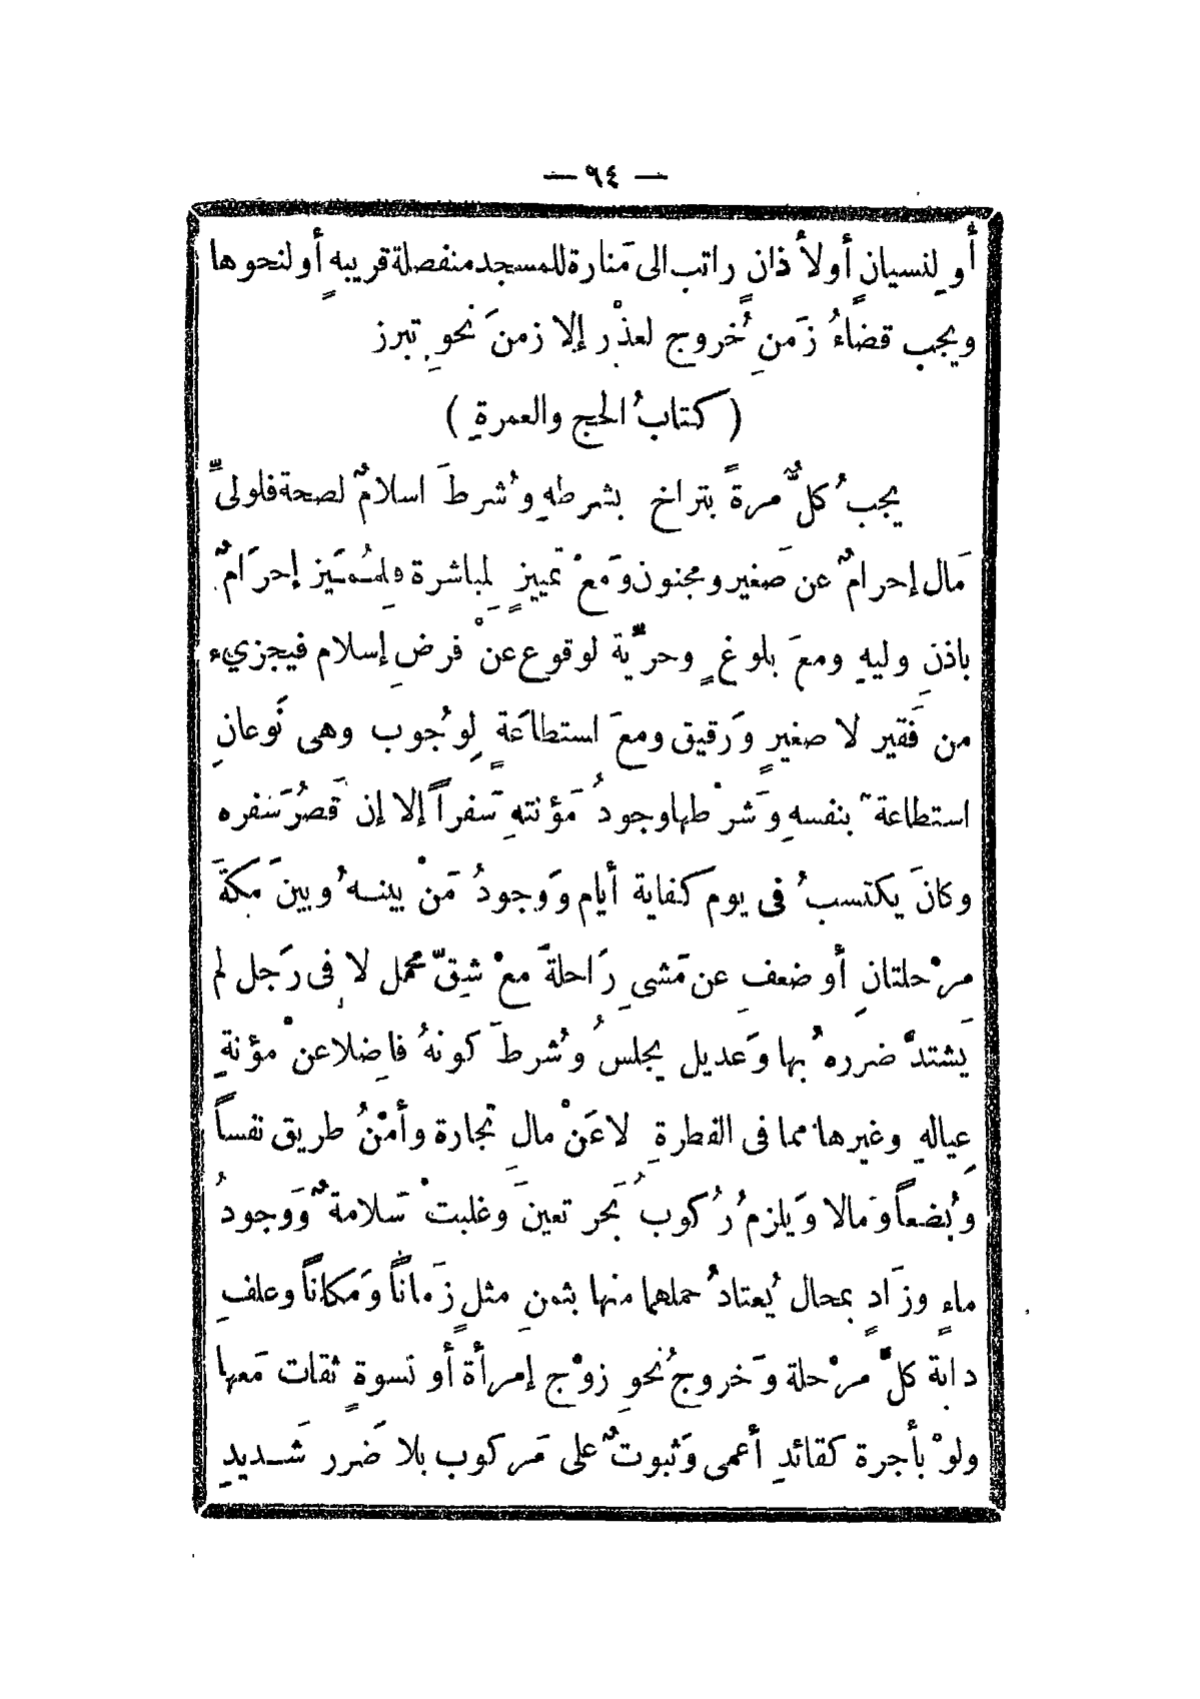 — ٩٤ —
أو لِنسيانٍ أولأذانٍ راتب الى مَنارة للمسجد منفصلة قريبهٍ أولنحوها
ويجب قضاءُ زَمنِ خُروج لعذْرٍ إلا زمنَ نحوِ تبرز
( كتابُ الحج والعمرةِ )
يجبُ كلٌّ مرةً بتراخ بشرطهِ وشُرطَ اسلامٌ لصحة فلولىِّ
مَال إحرامٌ عن صَغير ومجنون ومَعْ تمييزٍ لِمباشرة فلِمُمَيز إحرَامٌ
باذنِ وليهِ ومعَ بلوغٍ وحرِّيةٍ لوقوعٍ عنْ فرضِ إسلام فيجزيء
من فَقير لا صغيرٍ وَرقيق ومعَ استطاعَةٍ لِوجُوب وهى نَوعانِ
استطاعة ٌ بنفسهِ وَشرْطها وجودُ مَؤنتهِ سَفراً إلا إن قَصُرَ سَفره
وكانَ يكتسبُ فى يوم كفاية أيام وَوَجودُ مَنْ بينــهُ وبينَ مَكةَ
مرْحلتانِ أو ضعفِ عن مَشىٍ رَاحلةً معْ شِقِّ محمل لا فِى رَجل لم
يَشتدَّ ضررهُ بها وَعديل يجلسُ وشُرطَ كونهُ فاضِلا عنْ مؤنةِ
عِيالهِ وغيرها مما فى الفطرةِ لاعَنْ مالِ تجارة وأمْنُ طريق نفساً
وبُضعاً وَمالا وَيلزمُ رُكوبُ بَحر تعينَ وغلبتْ سَلامةٌ وَوَجودُ
ماءٍ وزَادٍ بمحال يُعتادُ حملهما منها بثمنِ مثلٍ زَماناً وَمَكاناً وعلفِ
دابة كلَّ مرْحلة وَخروجُ نحوِ زوْج إمرأة أو نسوةٍ ثقات مَعها
ولوْ بأجرة كقائدِ أعمى وَثبوتٌ على مَركوب بلا ضَرر شَــديدٍ